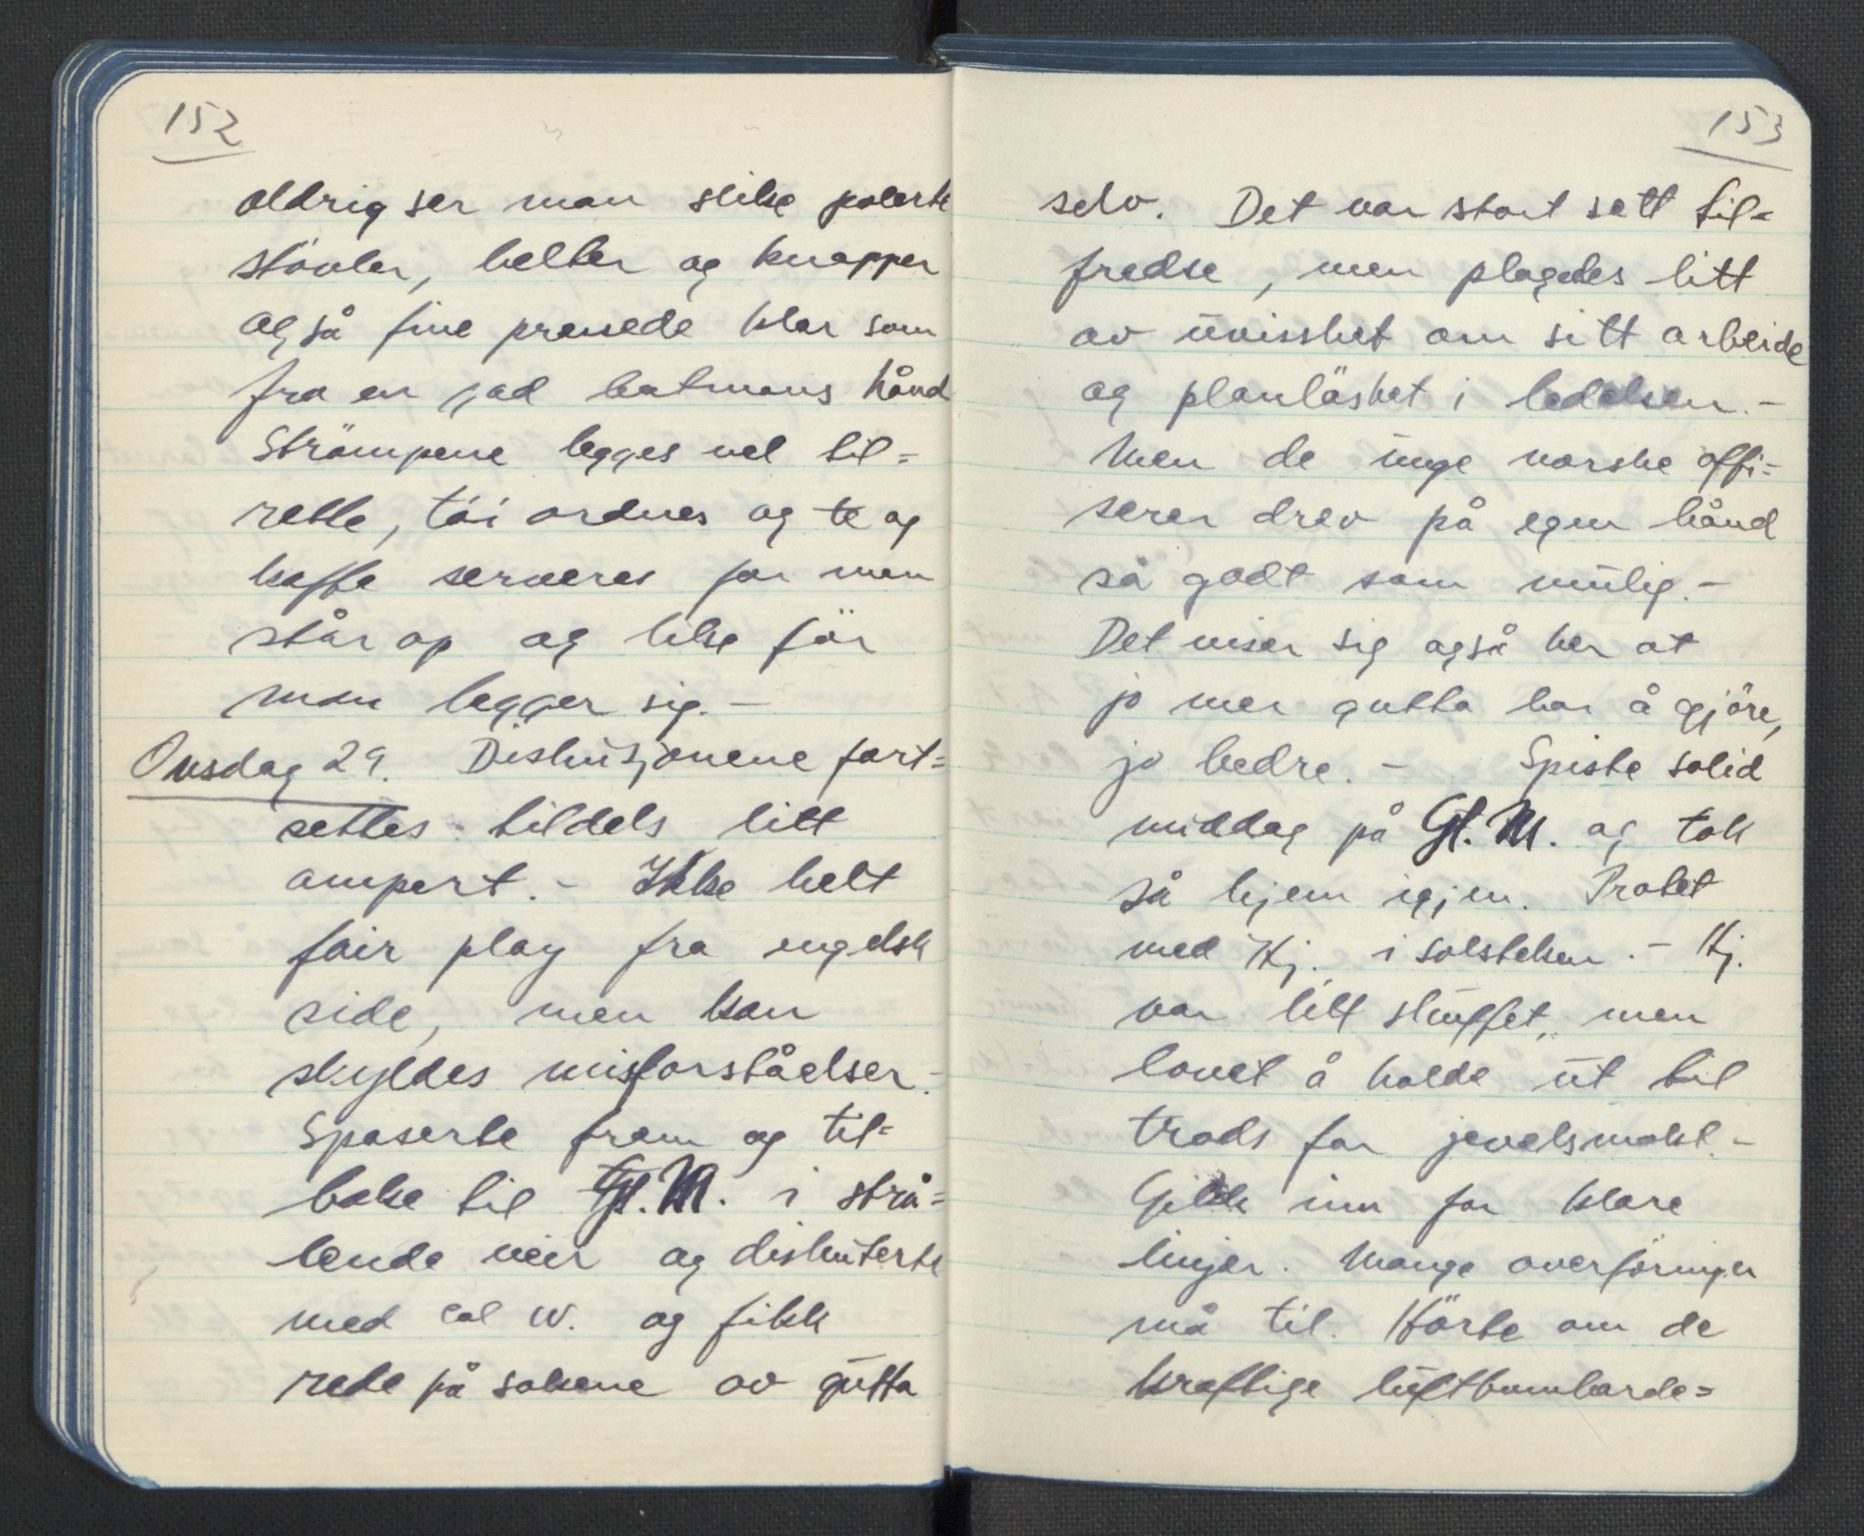 152
aldrig ser man slike polerte
stövler, belter og knapper
også fine pressede klær som
fra en god batmans hånd
Strömpene legges vel til=
rette, töi ordnes og te og
kaffe serveres før man
står op og like för
man legger sig. –
Onsdag 29. Diskusjonene fort=
settes tildels litt
ampert. – Ikke helt
fair play fra engelsk
side, men kan
skyldes misforståelser. –
Spaserte frem og til=
bake til Gl. M. i strå=
lende veir og diskuterte
med Col W. og fikk
rede på sakene av gutta
153
selv. Det var stort sett til=
fredse, men plagedes litt
av uvisshet om sitt arbeide
og planlöshet i ledelsen. –
Men de unge norske offi=
serer drev på egen hånd
så godt som mulig. –
Det viser sig også her at
jo mer gutta har å gjöre,
jo bedre. – Spiste solid
middag på Gl. M. og tok
så hjem igjen. Pratet
med Hj. i solsteken. – Hj.
var litt skuffet, men
lovet å holde ut til
trods for jevelsmakt –
Gikk inn for klare
linjer. Mange overföringer
må til. Hörte om de
kraftige luftbombarde=